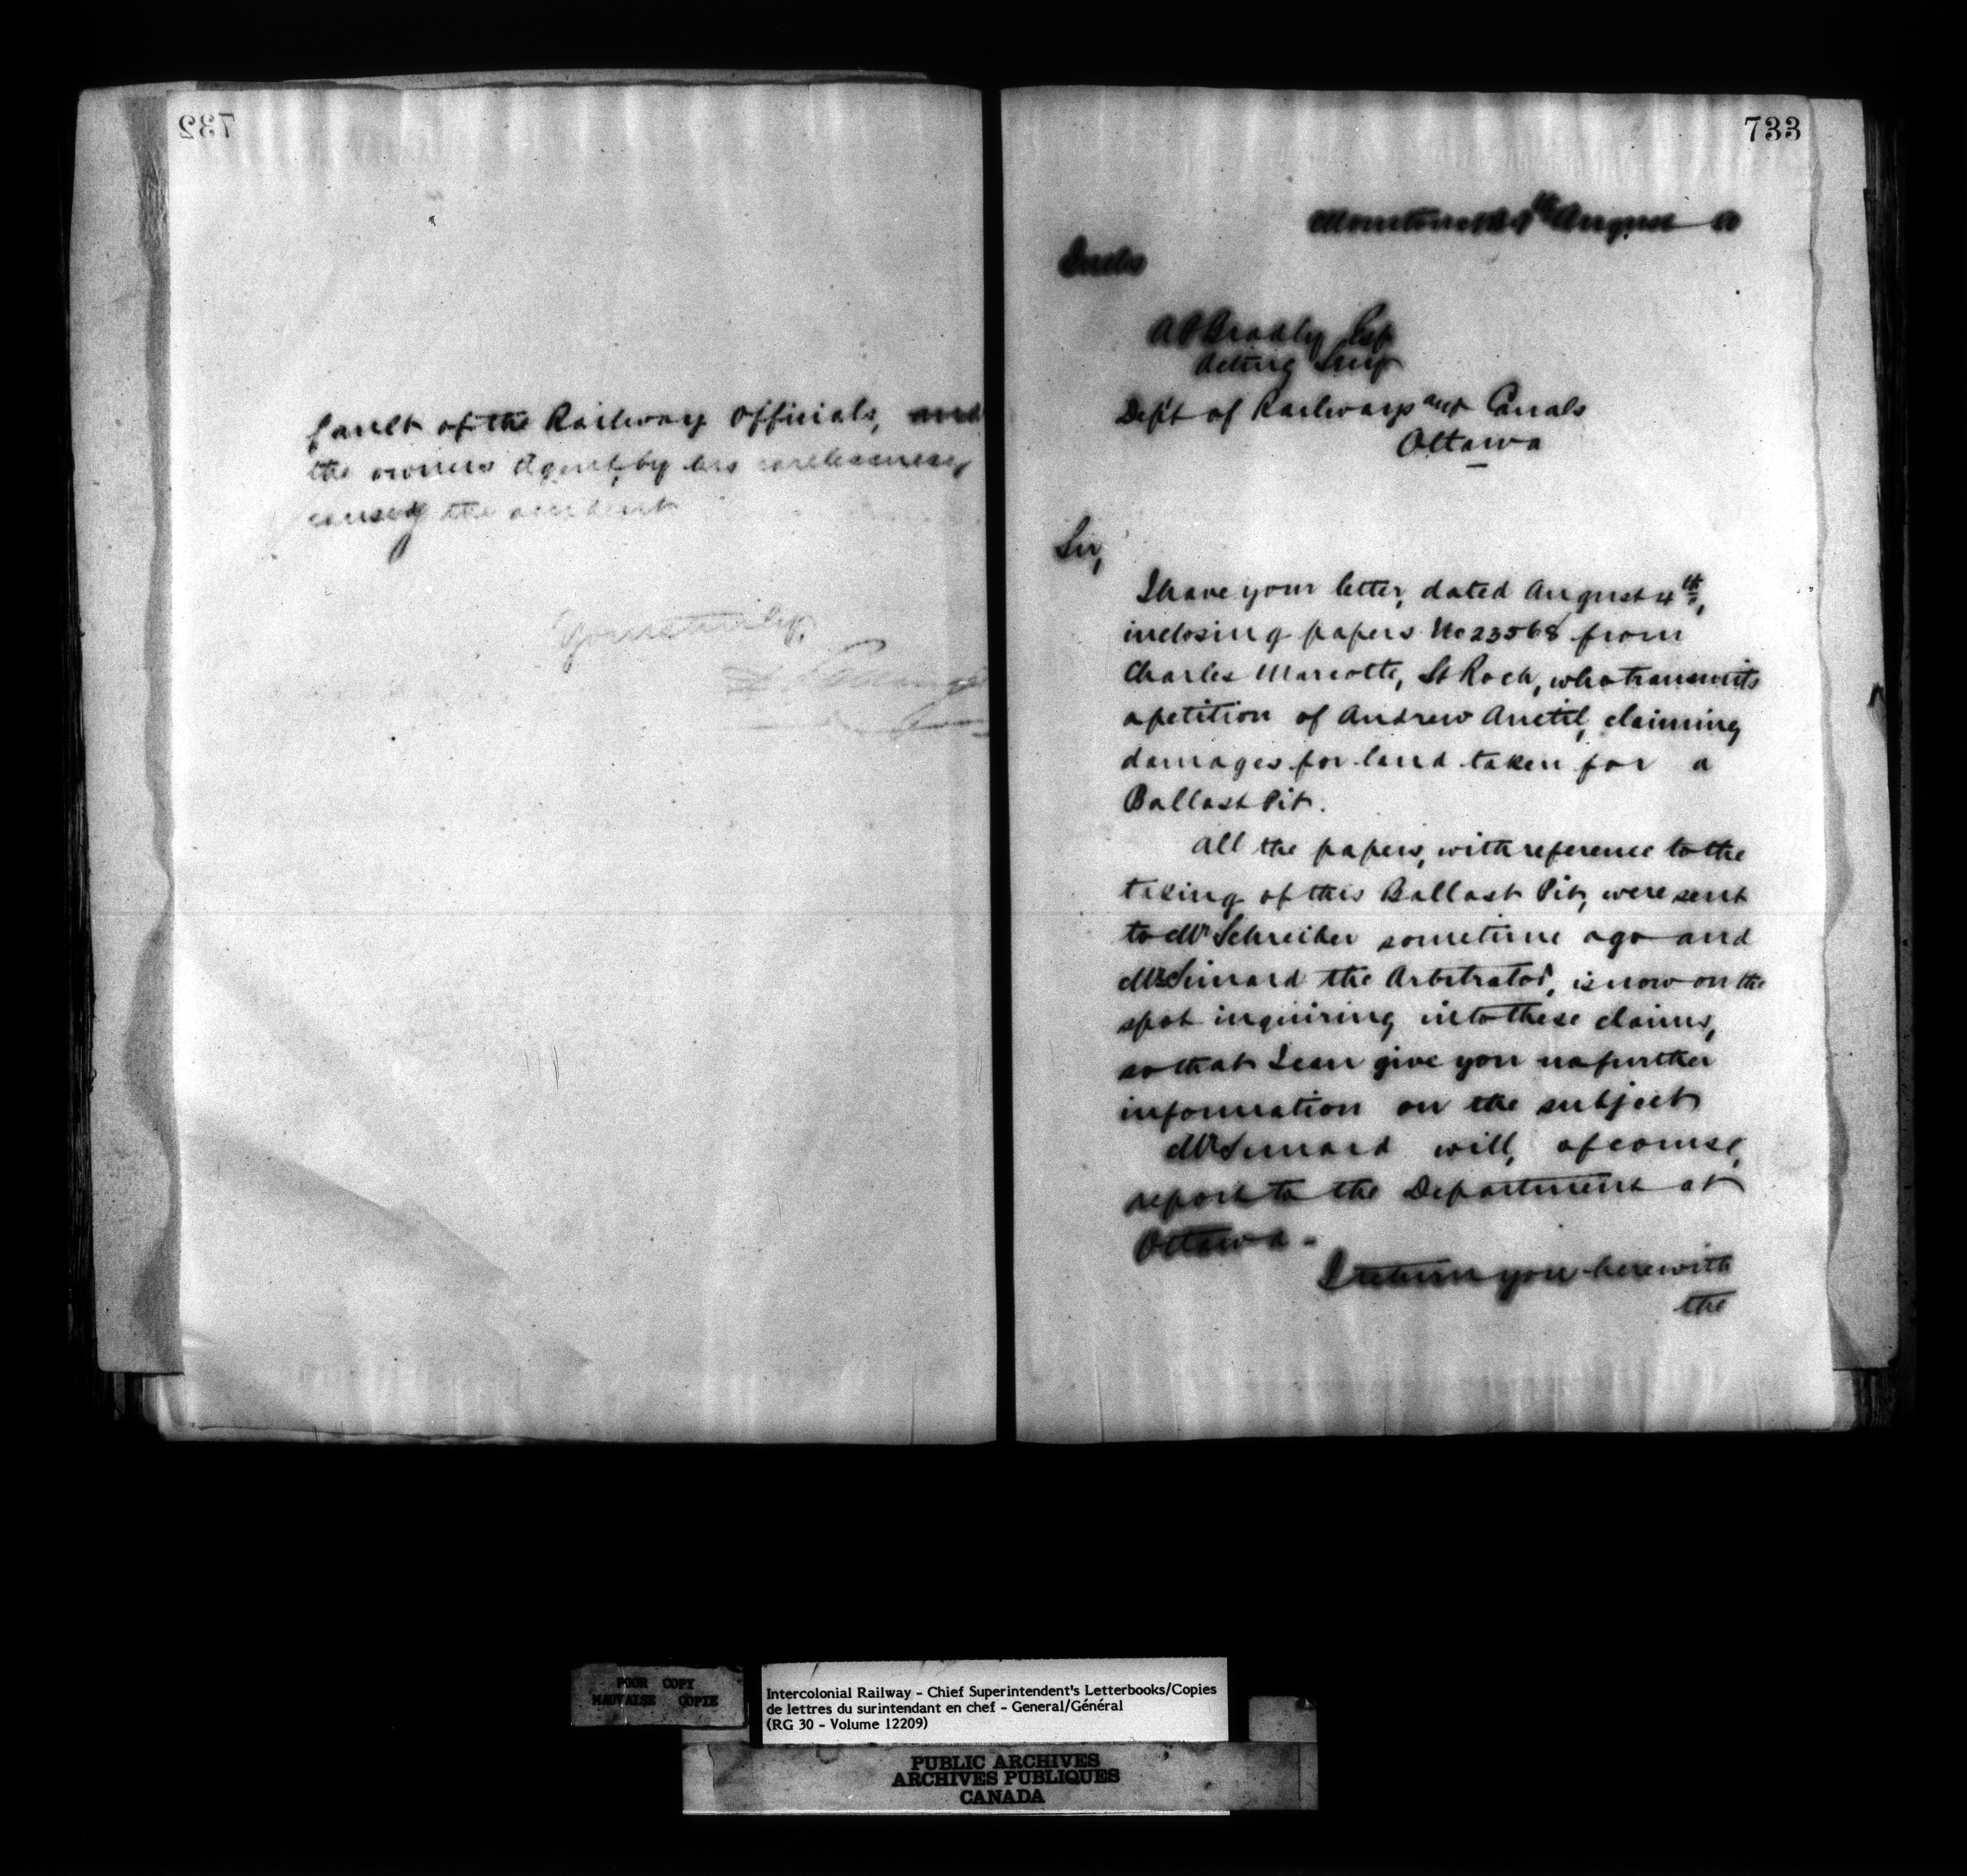 732
fault of the Railway Officials, and
the owners Agent, by his carelessness,
causing the accident
Yours truly,
733
Moncton August
A P Bradly Esq
Acting Secy
Dept of Railways and Canals
Ottawa
Sir,
I have your letter, dated August 4th,
inclosing papers No 23568 from
Charles Marcotte, St Roch, who transmits
a petition of Andrew Anctil, claiming
damages for land taken for a
Ballast Pit.
All the papers, with reference to the
taking of this Ballast Pit, were sent
to Mr Schreiber sometime ago and
Mr Simard the Arbitrator, is now on the
spot inquiring into these claims,
so that I can give you no further
information on the subject
Mr Simard will, of course,
report to the Department at
Ottawa -
I return you herewith
the
POOR COPY
MAUVAISE COPIE
Intercolonial Railway - Chief Superintendent's Letterbooks/Copies
de lettres du surintendant en chef - General/Général
(RG 30 - Volume 12209)
PUBLIC ARCHIVES
ARCHIVES PUBLIQUES
CANADA